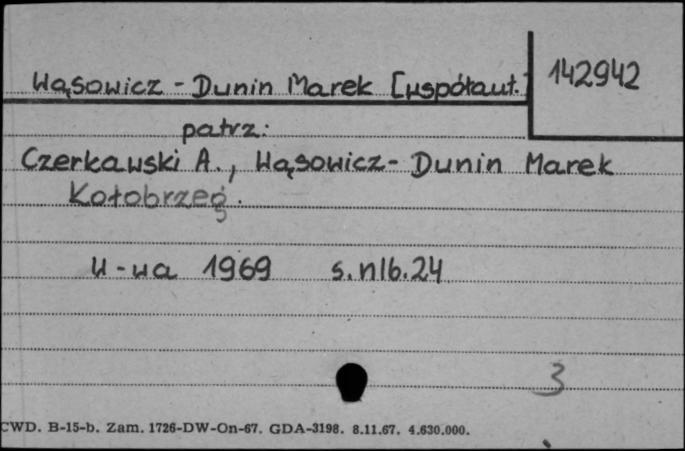 Wąsowicz - Dunin Marek [współaut.]
142942
patrz:
Czerkawski A., Wąsowicz - Dunin Marek
Kołobrzeg.
W-wa 1969 s.nlb.24
3
CWD. B-15-b. Zam. 1726-DW-On-67. GDA-3198. 8.11.67. 4.630.000.